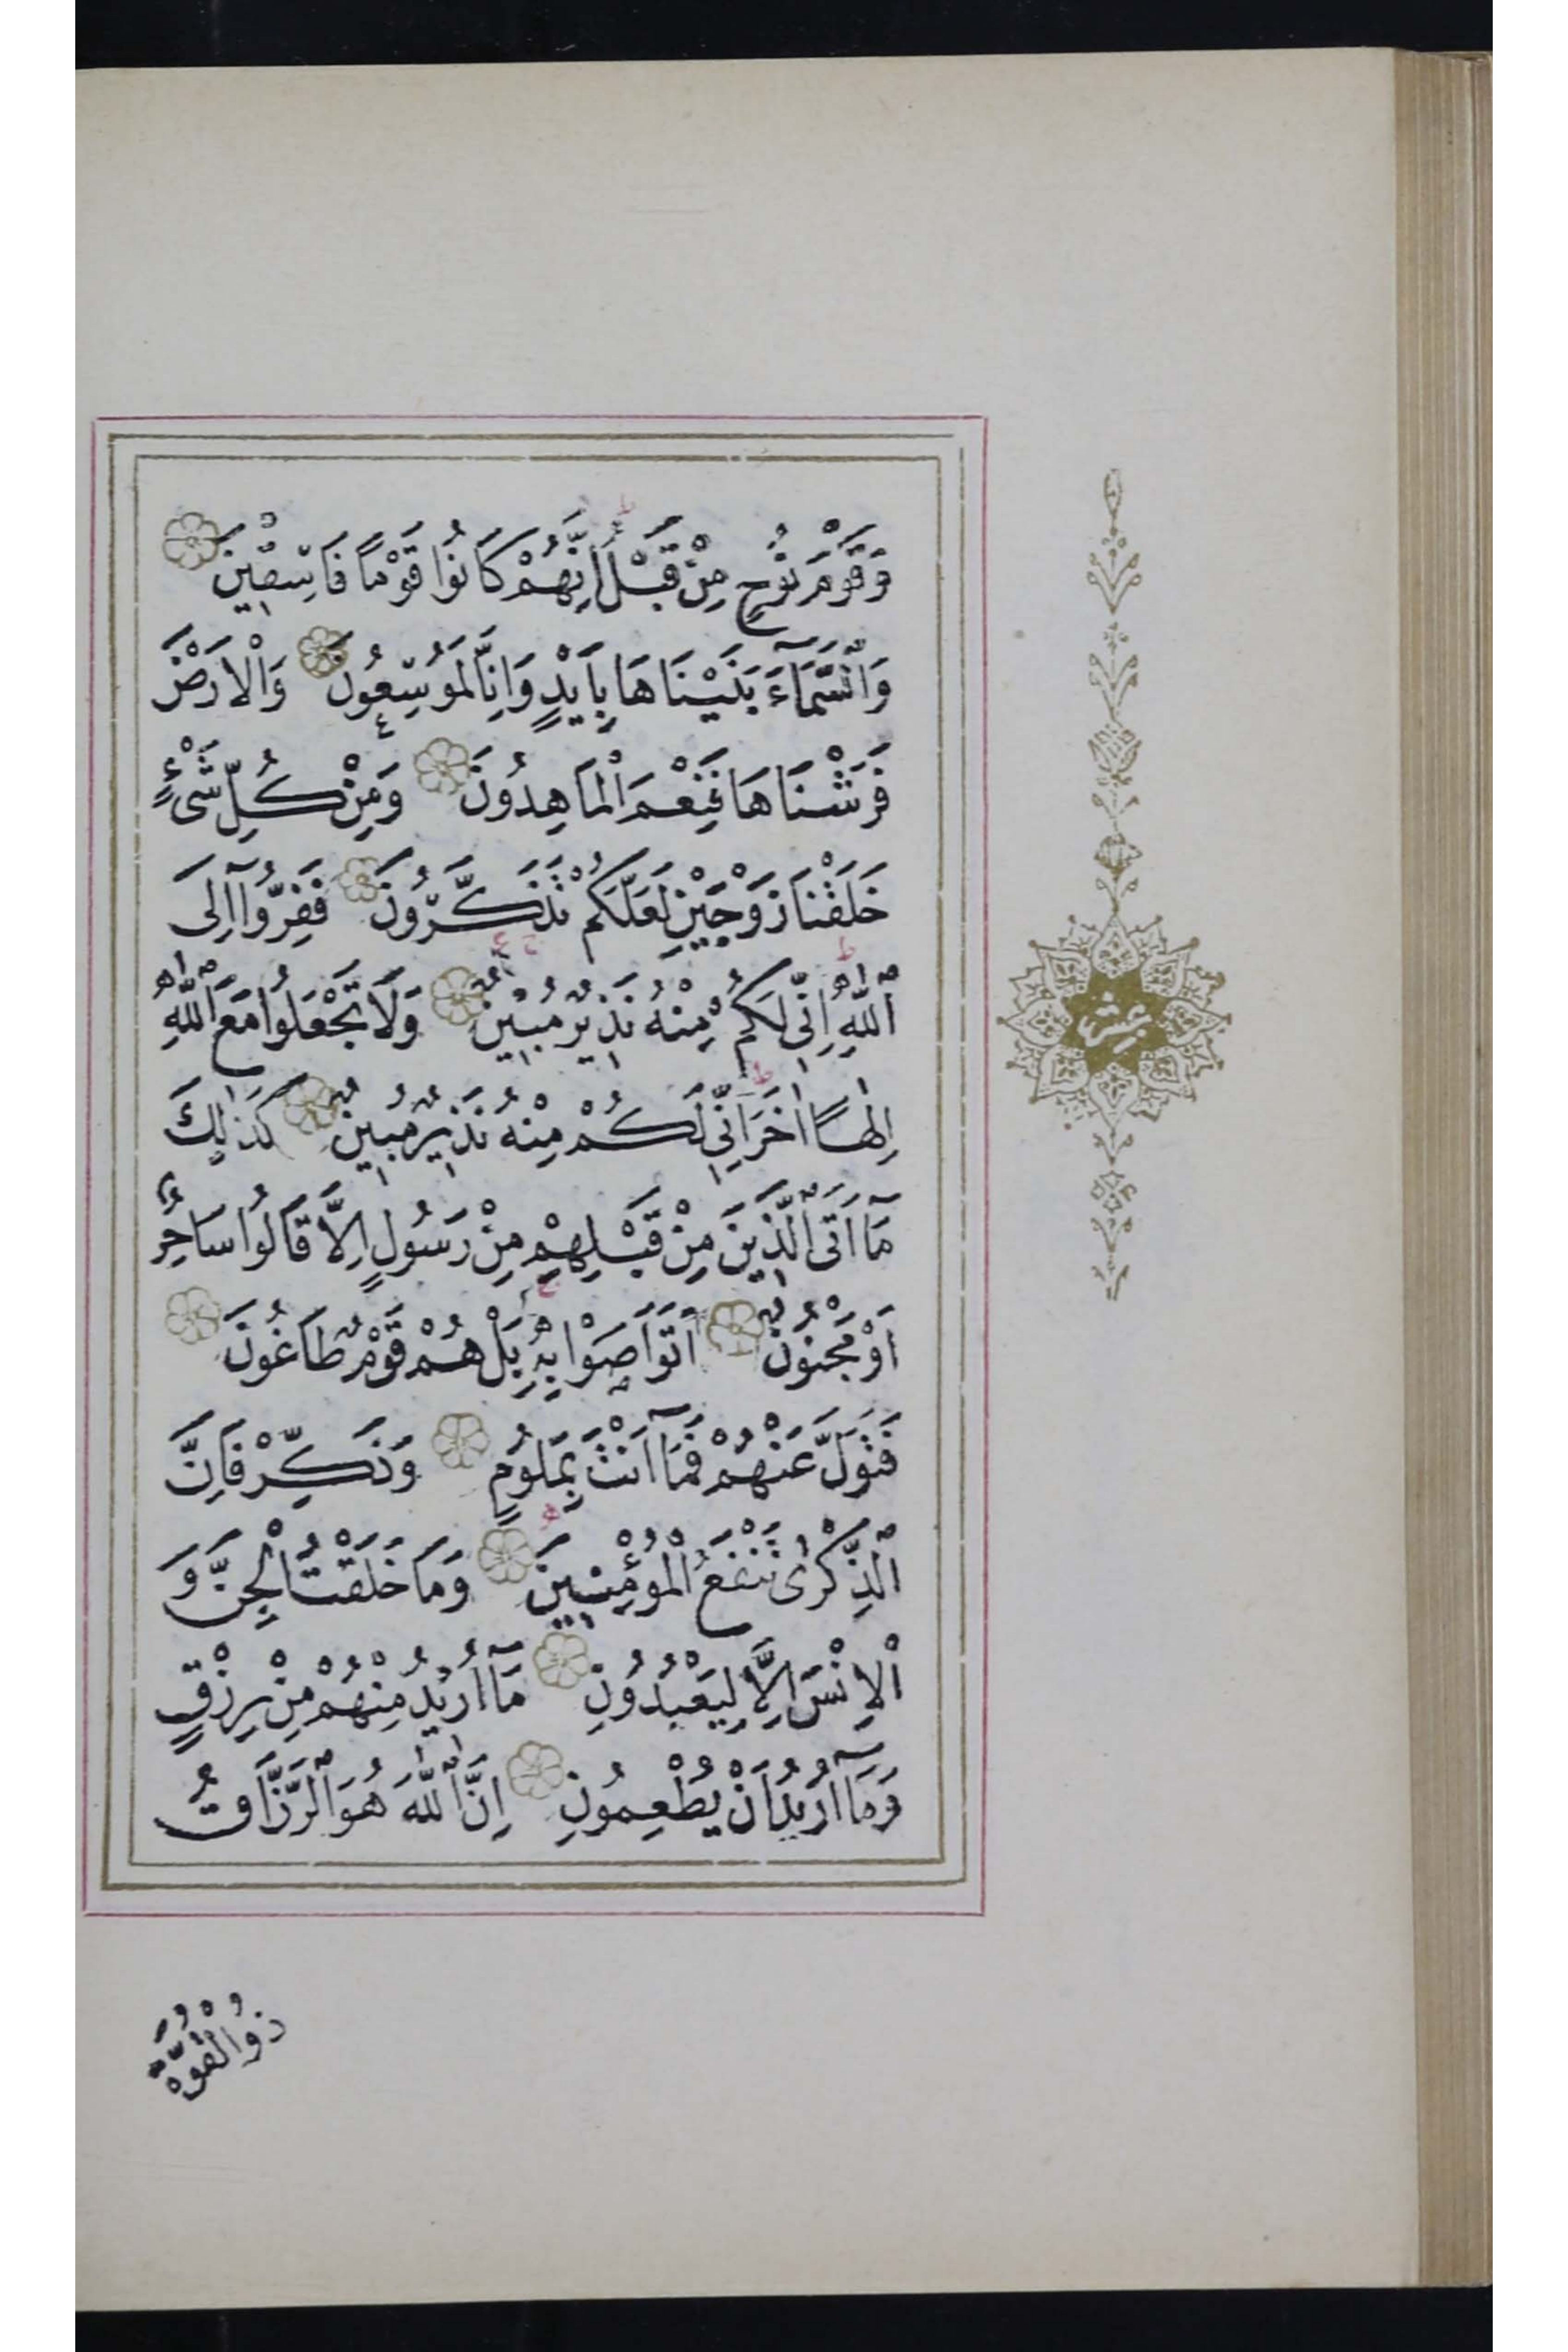 وَقَوْمَ نُوحٍ مِنْ قَبْلُ اِنَّهُمْ كَانُوا قَوْمًا فَاسِقِينَ
وَالسَّمَآءَ بَنَيْنَاهَا بِاَيْدٍ وَاِنَّا لَمُوسِعُونَ وَالْاَرْضَ
فَرَشْنَاهَا فَنِعْمَ الْمَاهِدُونَ وَمِنْ كُلِّ شَىْءٍ
خَلَقْنَا زَوْجَيْنِ لَعَلَّكُمْ تَذَكَّرُونَ فَفِرُّوٓا اِلَى
اللّٰهِ اِنِّى لَكُمْ مِنْهُ نَذِيرٌ مُبِينٌ وَلَا تَجْعَلُوا مَعَ اللّٰهِ
اِلٰهًا اٰخَرَ اِنِّى لَكُمْ مِنْهُ نَذِيرٌ مُبِينٌ كَذٰلِكَ
مَآ اَتَى الَّذِينَ مِنْ قَبْلِهِمْ مِنْ رَسُولٍ اِلَّا قَالُوا سَاحِرٌ
اَوْ مَجْنُونٌ اَتَوَاصَوْا بِهِ بَلْ هُمْ قَوْمٌ طَاغُونَ
فَتَوَلَّ عَنْهُمْ فَمَآ اَنْتَ بِمَلُومٍ وَذَكِّرْ فَاِنَّ
الذِّكْرٰى تَنْفَعُ الْمُؤْمِنِينَ وَمَا خَلَقْتُ الْجِنَّ وَ
الْاِنْسَ اِلَّا لِيَعْبُدُونِ مَآ اُرِيدُ مِنْهُمْ مِنْ رِزْقٍ
وَمَآ اُرِيدُ اَنْ يُطْعِمُونِ اِنَّ اللّٰهَ هُوَ الرَّزَّاقُ
ذُو الْقُوَّةِ
عشر